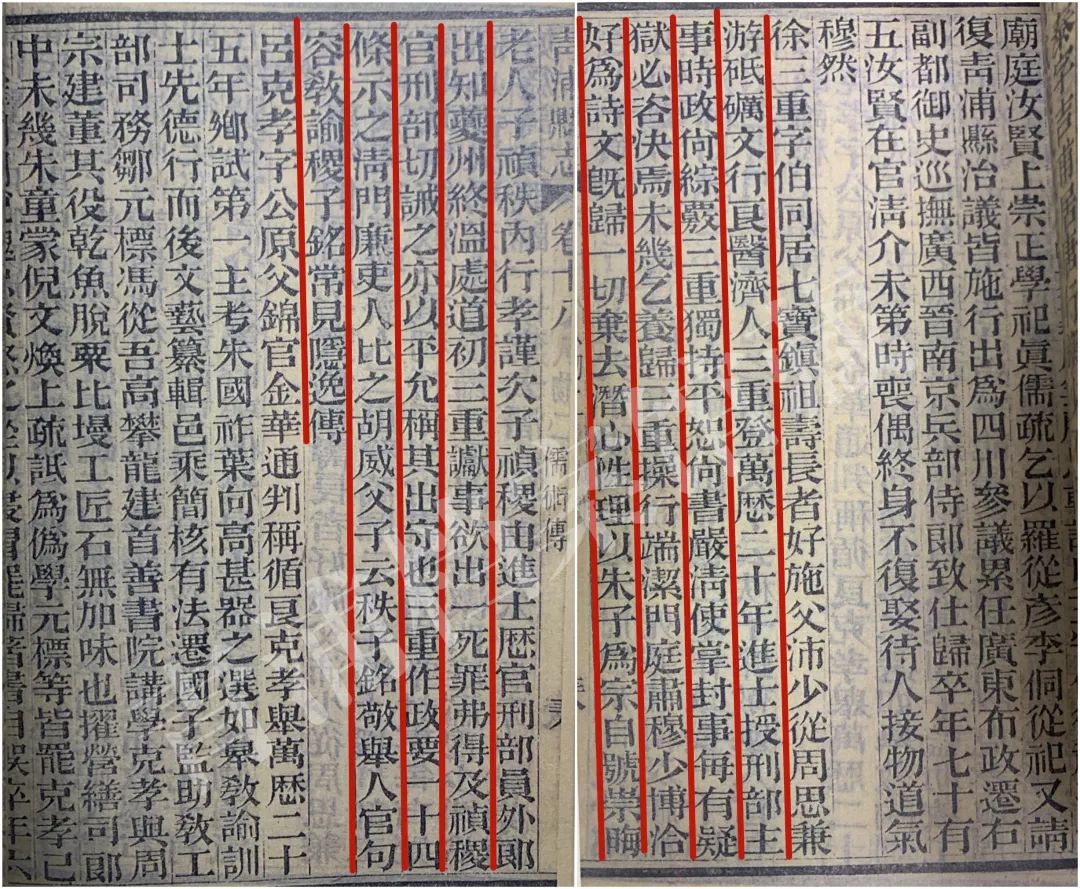 廟庭汝賢上崇正學祀眞儒疏乞以羅從彥李侗從祀又請
復靑浦縣治議皆施行出爲四川參議累任廣東布政遷右
副都御史巡撫廣西晉南京兵部侍郎致仕歸卒年七十有
五汝賢在官淸介未第時喪偶終身不復娶待人接物道氣
穆然
徐三重字伯同居七寶鎭祖壽長者好施父沛少從周思兼
游砥礪文行良醫濟人三重登萬歷二十年進士授刑部主
事時政尙綜覈三重獨持平恕尙書嚴淸使掌封事每有疑
獄必咨決焉未幾乞養歸三重操行端潔門庭肅穆少博洽
好爲詩文旣歸一切棄去潛心性理以朱子爲宗自號崇晦
靑浦縣志 卷十八 儒術傳
老人子禎秩內行孝謹次子禎稷由進士歷官刑部員外郎
出知夔州終溫處道初三重讞事欲出一死罪弗得及禎稷
官刑部切誡之亦以平允稱其出守也三重作政要二十四
條示之淸門廉吏人比之胡威父子云秩子銘敬舉人官句
容敎諭稷子銘常見隱逸傳
呂克孝字公原父錦官金華通判稱循良克孝舉萬歷二十
五年鄕試第一主考朱國祚葉向高甚器之選如皋敎諭訓
士先德行而後文藝纂輯邑乘簡核有法遷國子監助敎工
部司務鄒元標馮從吾高攀龍建首善書院講學克孝與周
宗建董其役乾魚脫粟比墁工匠石無加味也擢營繕司郎
中未幾朱童蒙倪文煥上疏詆爲僞學元標等皆罷克孝已